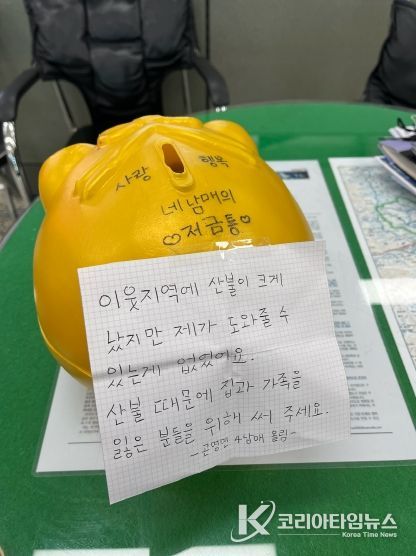 사랑
행복
네 남매의
♡저금통♡
이웃지역에 산불이 크게
났지만 제가 도와줄 수
있는게 없었어요.
산불 때문에 집과 가족을
잃은 분들을 위해 써 주세요.
-근영면 4남매 올림-
K 코리아타임뉴스
Korea Time News